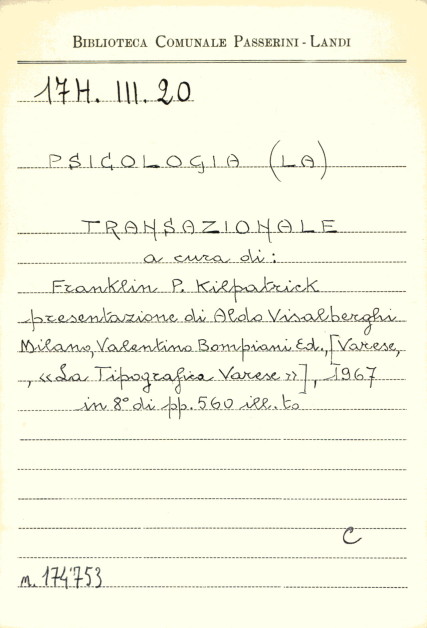 BIBLIOTECA COMUNALE PASSERINI - LANDI
17H. III. 20
PSICOLOGIA (LA)
TRANSAZIONALE
a cura di:
Franklin P. Kilpatrick
presentazione di Aldo Visalberghi
Milano, Valentino Bompiani Ed., [Varese,
, «La Tipografica Varese»], 1967
in 8° di pp. 560 ill.to
C
n. 174753